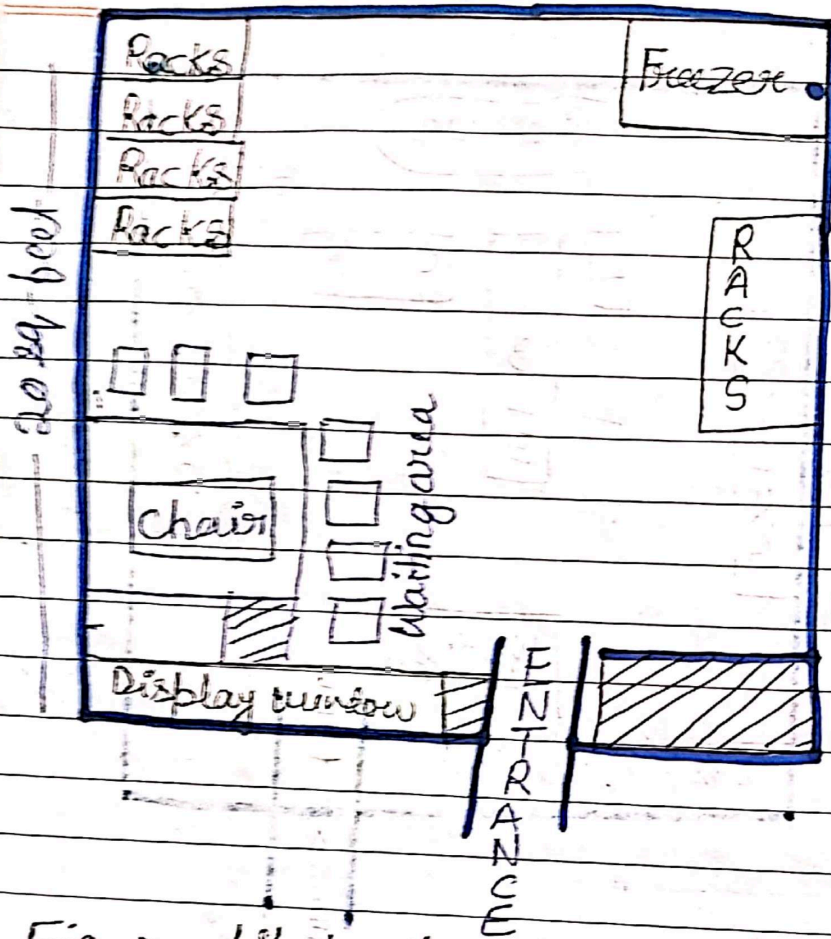 Racks
Racks
Racks
Racks
Freezer
RACKS
20 sq feet
Chair
Waiting area
Display window
ENTRANCE